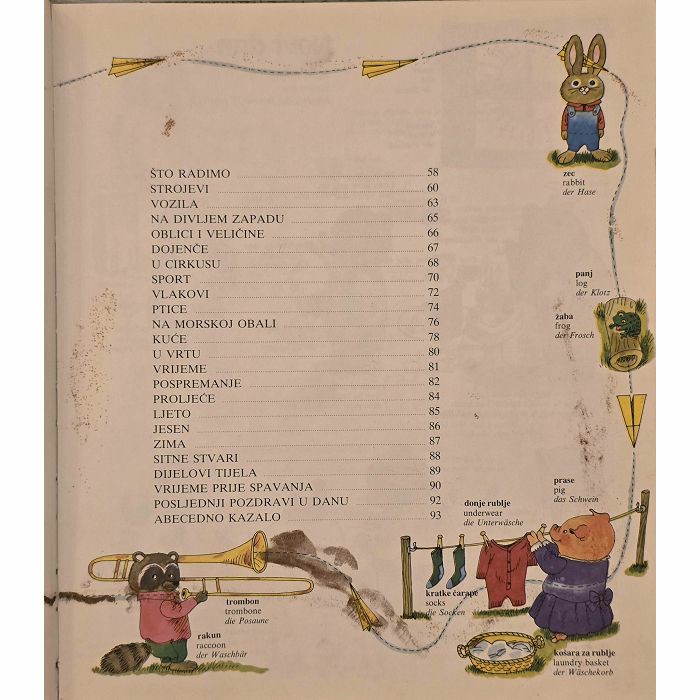 ŠTO RADIMO 58
STROJEVI 60
VOZILA 63
NA DIVLJEM ZAPADU 65
OBLICI I VELIČINE 66
DOJENČE 67
U CIRKUSU 68
SPORT 70
VLAKOVI 72
PTICE 74
NA MORSKOJ OBALI 76
KUĆE 78
U VRTU 80
VRIJEME 81
POSPREMANJE 82
PROLJEĆE 84
LJETO 85
JESEN 86
ZIMA 87
SITNE STVARI 88
DIJELOVI TIJELA 89
VRIJEME PRIJE SPAVANJA 90
POSLJEDNJI POZDRAVI U DANU 92
ABECEDNO KAZALO 93
zec
rabbit
der Hase
panj
log
der Klotz
žaba
frog
der Frosch
prase
pig
das Schwein
donje rublje
underwear
die Unterwäsche
kratke čarape
socks
die Socken
trombon
trombone
die Posaune
rakun
raccoon
der Waschbär
košara za rublje
laundry basket
der Wäschekorb